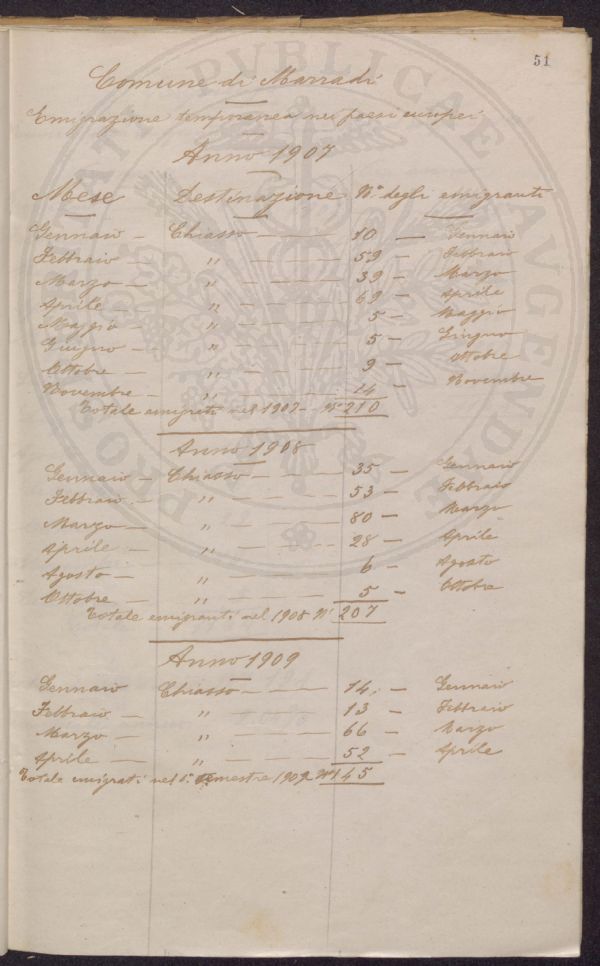 51
Comune di Marradi
Emigrazione temporanea nei paesi europei
Anno 1907
Mese Destinazione N.° degli emigranti
Gennaio — Chiasso — 10 — Gennaio
Febbraio — " — 59 — Febbraio
Marzo — " — 39 — Marzo
Aprile — " — 69 — Aprile
Maggio — " — 5 — Maggio
Giugno — " — 5 — Giugno
Ottobre — " — 9 — Ottobre
Novembre — " — 14 — Novembre
Totale emigrati nel 1907 — N° 210
Anno 1908
Gennaio — Chiasso — 35 — Gennaio
Febbraio — " — 53 — Febbraio
Marzo — " — 80 — Marzo
Aprile — " — 28 — Aprile
Agosto — " — 6 — Agosto
Ottobre — " — 5 — Ottobre
Totale emigranti nel 1908 N° 207
Anno 1909
Gennaio Chiasso — 14 — Gennaio
Febbraio — " — 13 — Febbraio
Marzo — " — 66 — Marzo
Aprile — " — 52 — Aprile
Totale emigrati nel 1° semestre 1909 N° 145